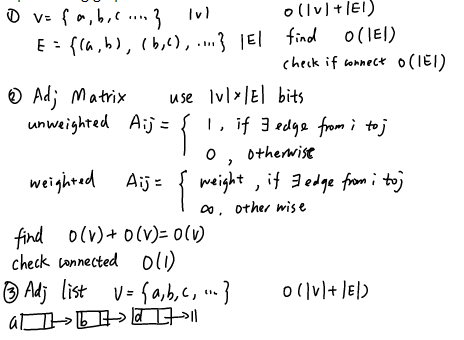 ① V = { a, b, c .... } |V| O(|V|+|E|)
E = {(a,b), (b,c), ....} |E| find O(|E|)
check if connect O(|E|)
② Adj Matrix use |V|*|E| bits
unweighted Aij = { 1, if ∃ edge from i to j
0, otherwise
weighted Aij = { weight, if ∃ edge from i to j
∞, otherwise
find O(V) + O(V) = O(V)
check connected O(1)
③ Adj list V = {a,b,c, ...} O(|V|+|E|)
a → b → d → ||